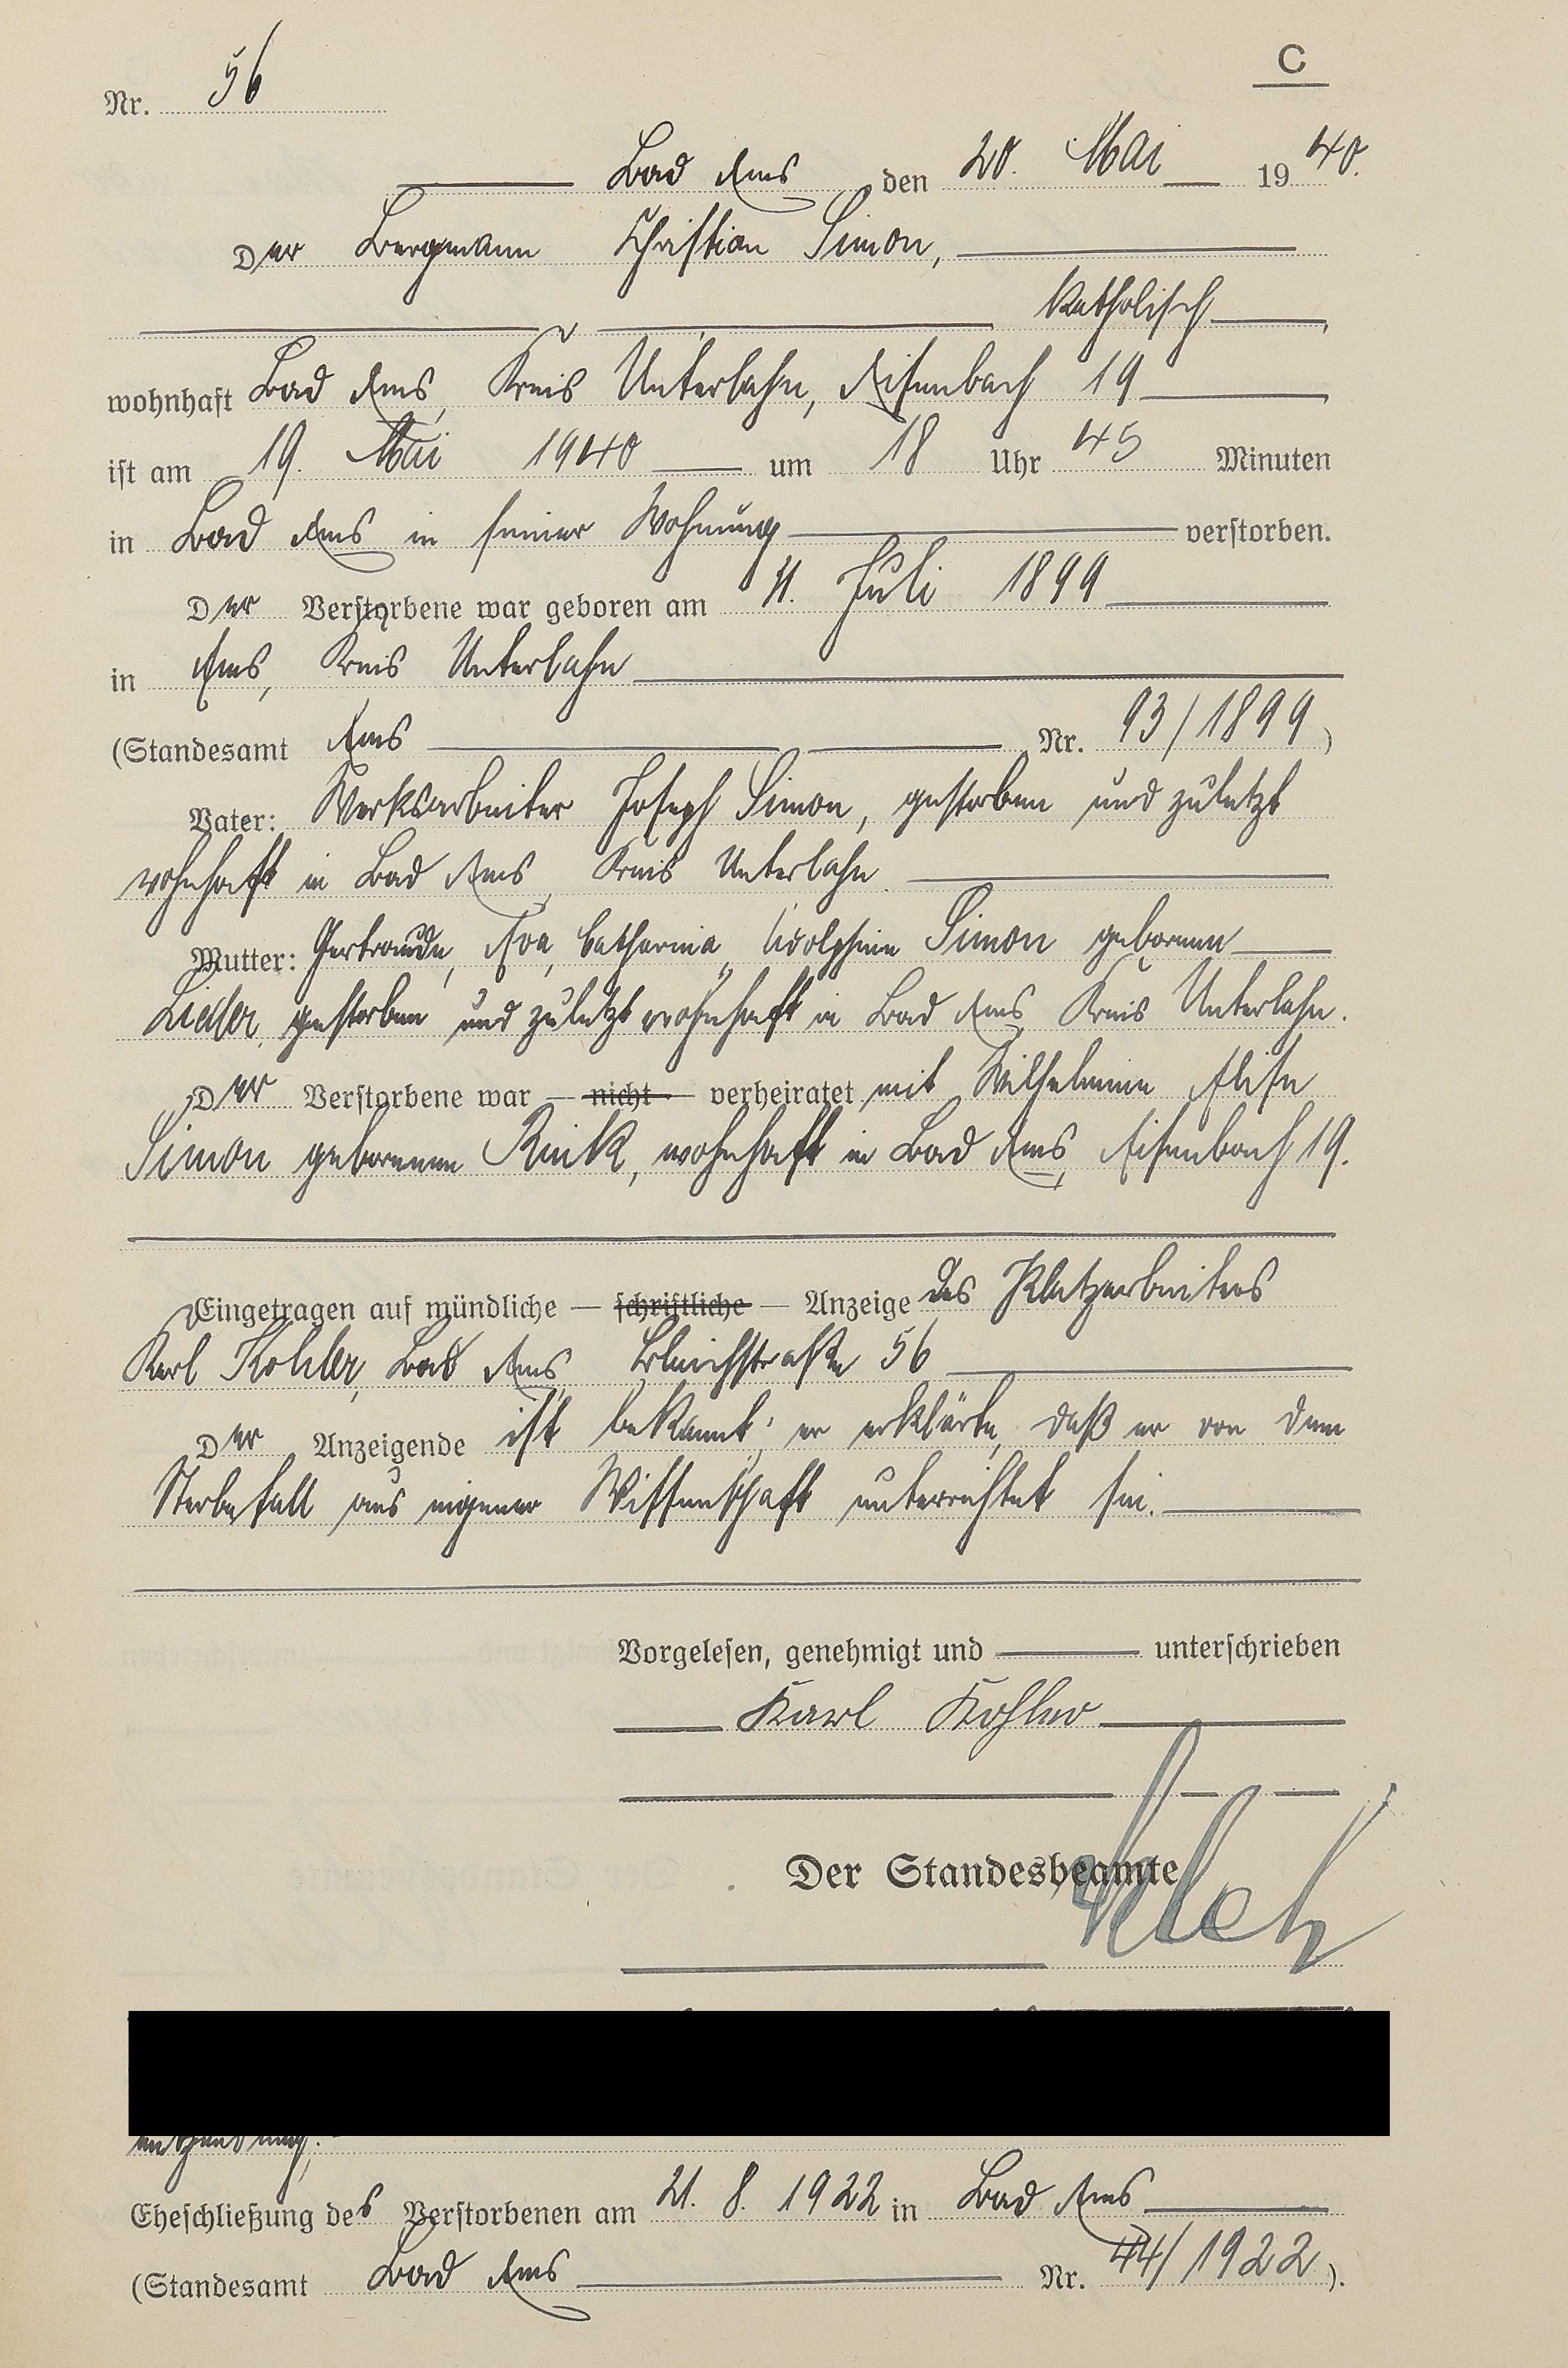 C
Nr. 56
Bad Ems den 20. Mai 1940.
Der Bergmann Christian Simon,
katholisch,
wohnhaft Bad Ems, Kreis Unterlahn, Eisenbach 19,
ist am 19. Mai 1940 um 18 Uhr 45 Minuten
in Bad Ems in seiner Wohnung verstorben.
Der Verstorbene war geboren am 11. Juli 1899
in Ems, Kreis Unterlahn
(Standesamt Ems Nr. 93/1899)
Vater: Werksarbeiter Joseph Simon, gestorben und zuletzt
wohnhaft in Bad Ems, Kreis Unterlahn.
Mutter: Gertraude, Eva, Catharina, Adolphine Simon geborenen
gestorben und zuletzt wohnhaft in Bad Ems, Kreis Unterlahn.
Der Verstorbene war — nicht — verheiratet mit Wilhelmine Elise
Simon geborenen Rink, wohnhaft in Bad Ems, Eisenbach 19.
Eingetragen auf mündliche — schriftliche — Anzeige des Platzarbeiters
Karl Kohler, Bad Ems, 56
Der Anzeigende ist bekannt; er erklärte, daß er von dem
Sterbefall aus eigener Wissenschaft unterrichtet sei.
Vorgelesen, genehmigt und unterschrieben
Karl Kohler
Der Standesbeamte
Eheschließung des Verstorbenen am 21. 8. 1922 in Bad Ems
(Standesamt Bad Ems Nr. 44/1922).